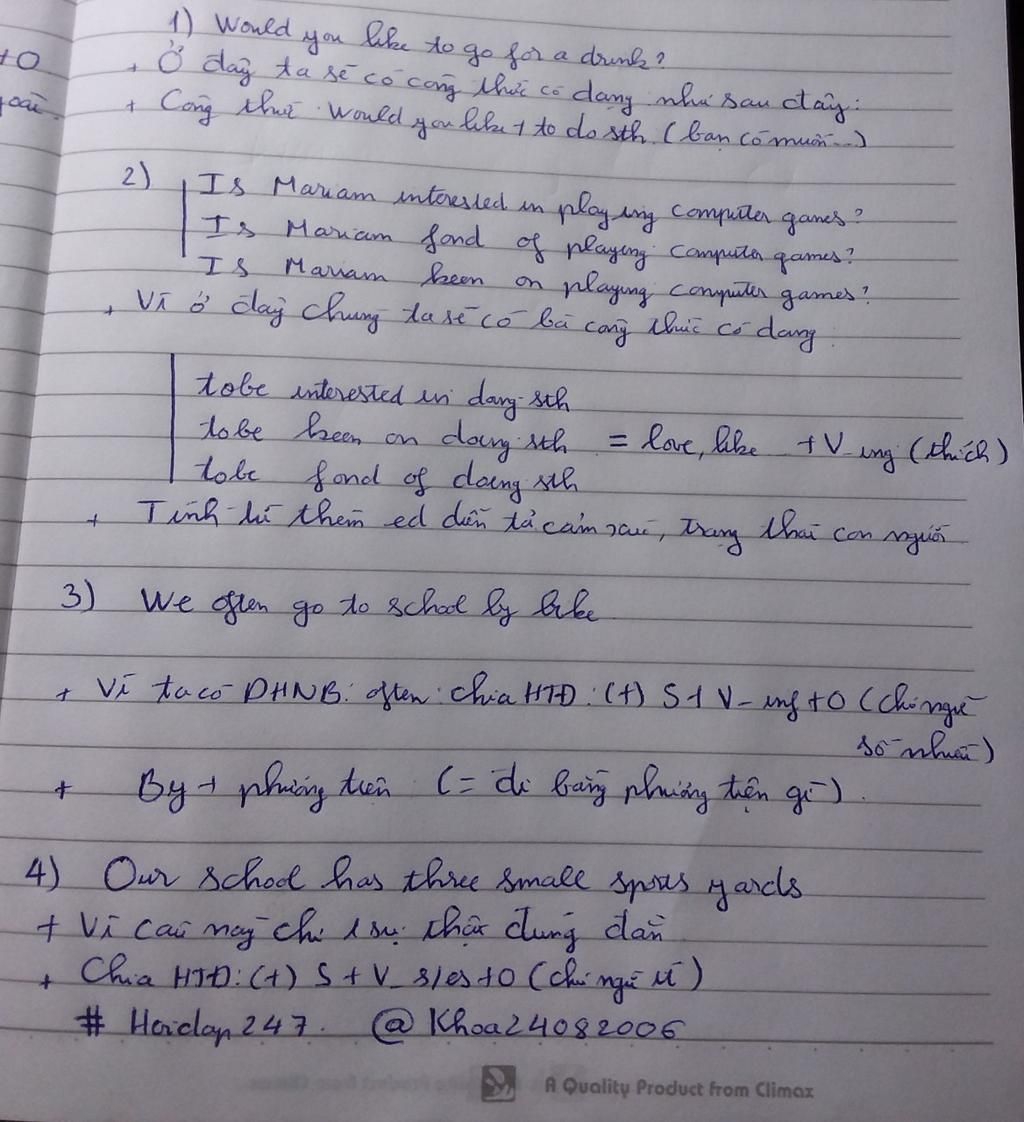 1) Would you like to go for a drink?
+ Ở đây ta sẽ có công thức có dạng như sau đây:
+O
+ Công thức: Would you like + to do sth (bạn có muốn...)
2) Is Mariam interested in playing computer games?
Is Mariam fond of playing computer games?
Is Mariam keen on playing computer games?
+ Vì ở đây chúng ta sẽ có ba công thức có dạng:
tobe interested in doing sth
tobe keen on doing sth = love, like + V_ing (thích)
tobe fond of doing sth
+ Tính từ thêm ed diễn tả cảm xúc, trạng thái con người
3) We often go to school by bike
+ Vì ta có DHNB: often: chia HTĐ: (+) S + V_inf + O (chủ ngữ
số nhiều)
+ By + phương tiện (= đi bằng phương tiện gì).
4) Our school has three small sports yards
+ Vì câu này chỉ 1 sự thật đúng đắn
+ Chia HTĐ: (+) S + V_s/es + O (chủ ngữ ít)
# Hoidap247. @Khoa24082006
A Quality Product from Climax